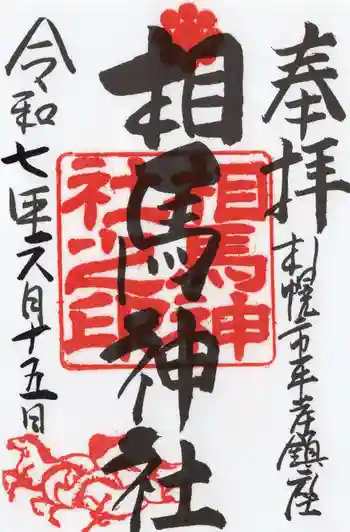 奉拝
札幌市平岸鎮座
相馬神社
相馬神社之印
令和七年六月十五日